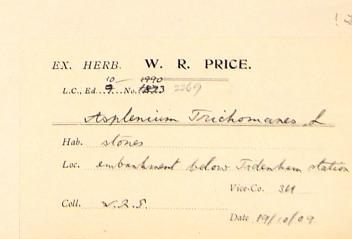 EX. HERB. W. R. PRICE.
10 1990
L.C., Ed. 9 No. 1823 2269
Asplenium Trichomanes L
Hab. stones
Loc. embankment below Tidenham station
Vice-Co. 34
Coll. W.R.P.
Date 19/10/09